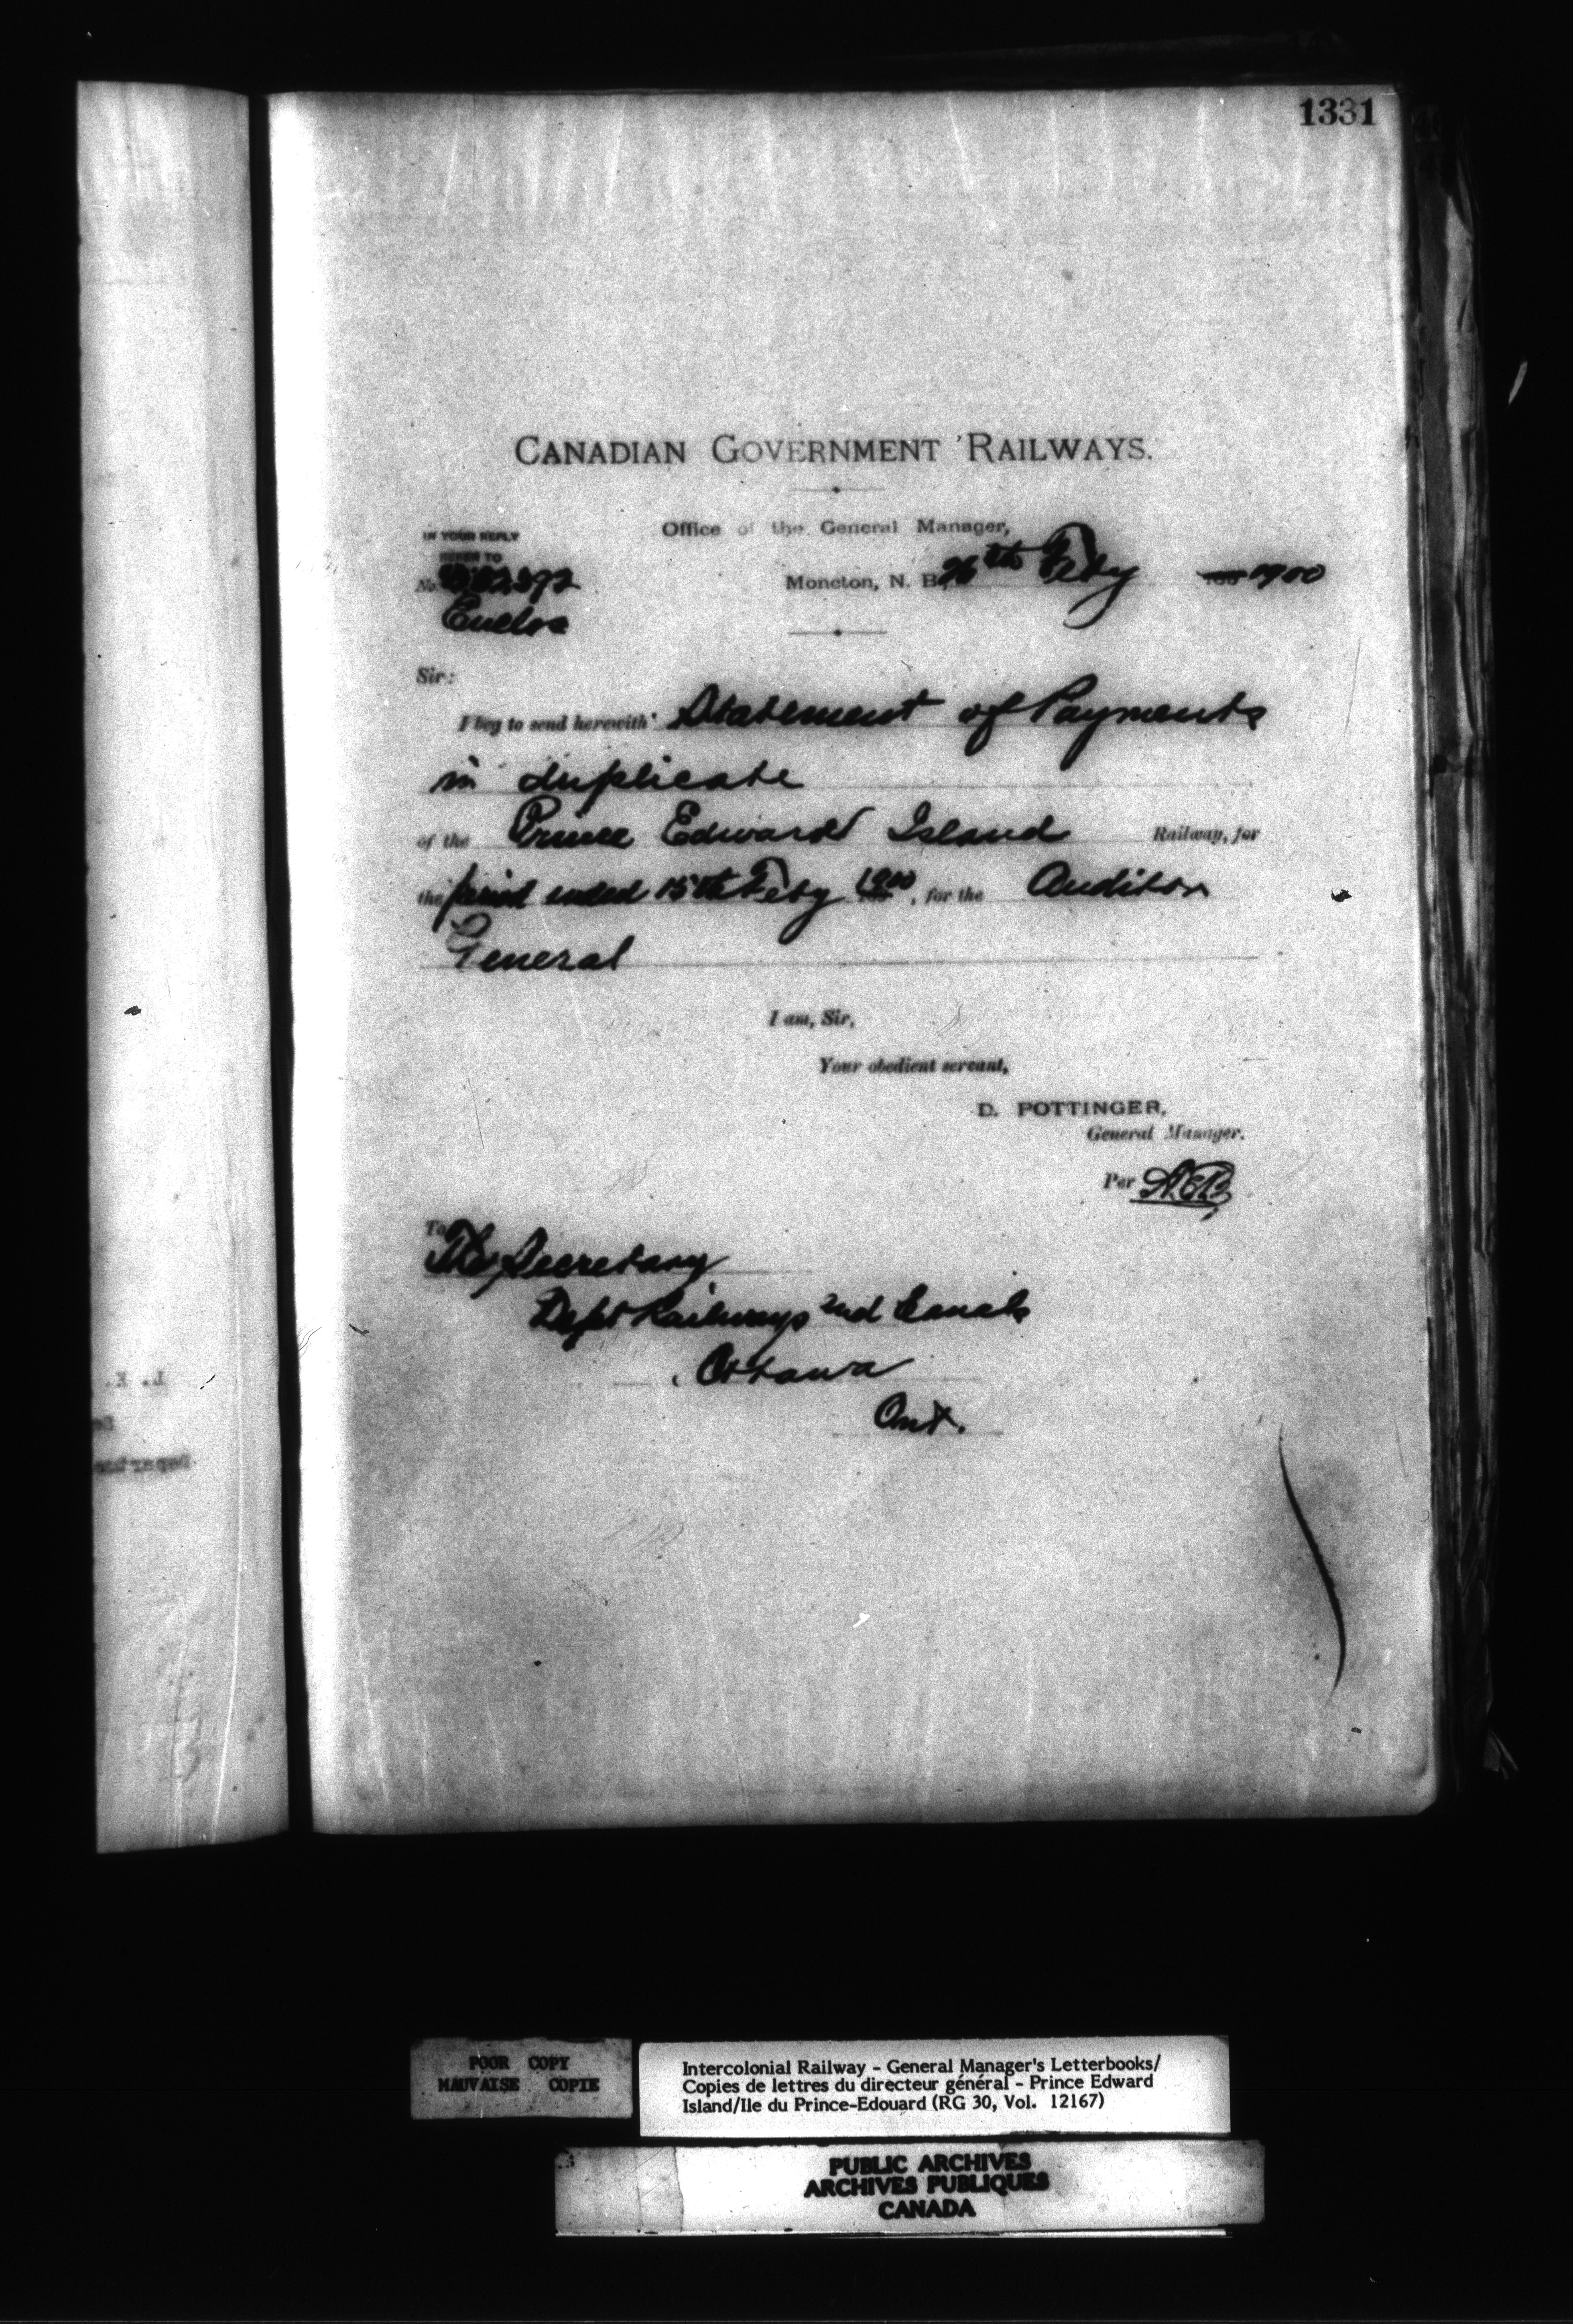 1331
CANADIAN GOVERNMENT RAILWAYS.
Office of the General Manager,
IN YOUR REPLY
REFER TO
No.
Enclos
Moncton, N. B. 26th Feby 1900
Sir:
I beg to send herewith Statement of Payments
in duplicate
of the Prince Edward Island Railway, for
the period ended 15th Feby 1900, for the Auditor
General
I am, Sir,
Your obedient servant,
D. POTTINGER,
General Manager.
Per
To
The Secretary
Dept Railways and Canals
Ottawa
Ont.
POOR COPY
MAUVAISE COPIE
Intercolonial Railway - General Manager's Letterbooks/
Copies de lettres du directeur général - Prince Edward
Island/Ile du Prince-Edouard (RG 30, Vol. 12167)
PUBLIC ARCHIVES
ARCHIVES PUBLIQUES
CANADA